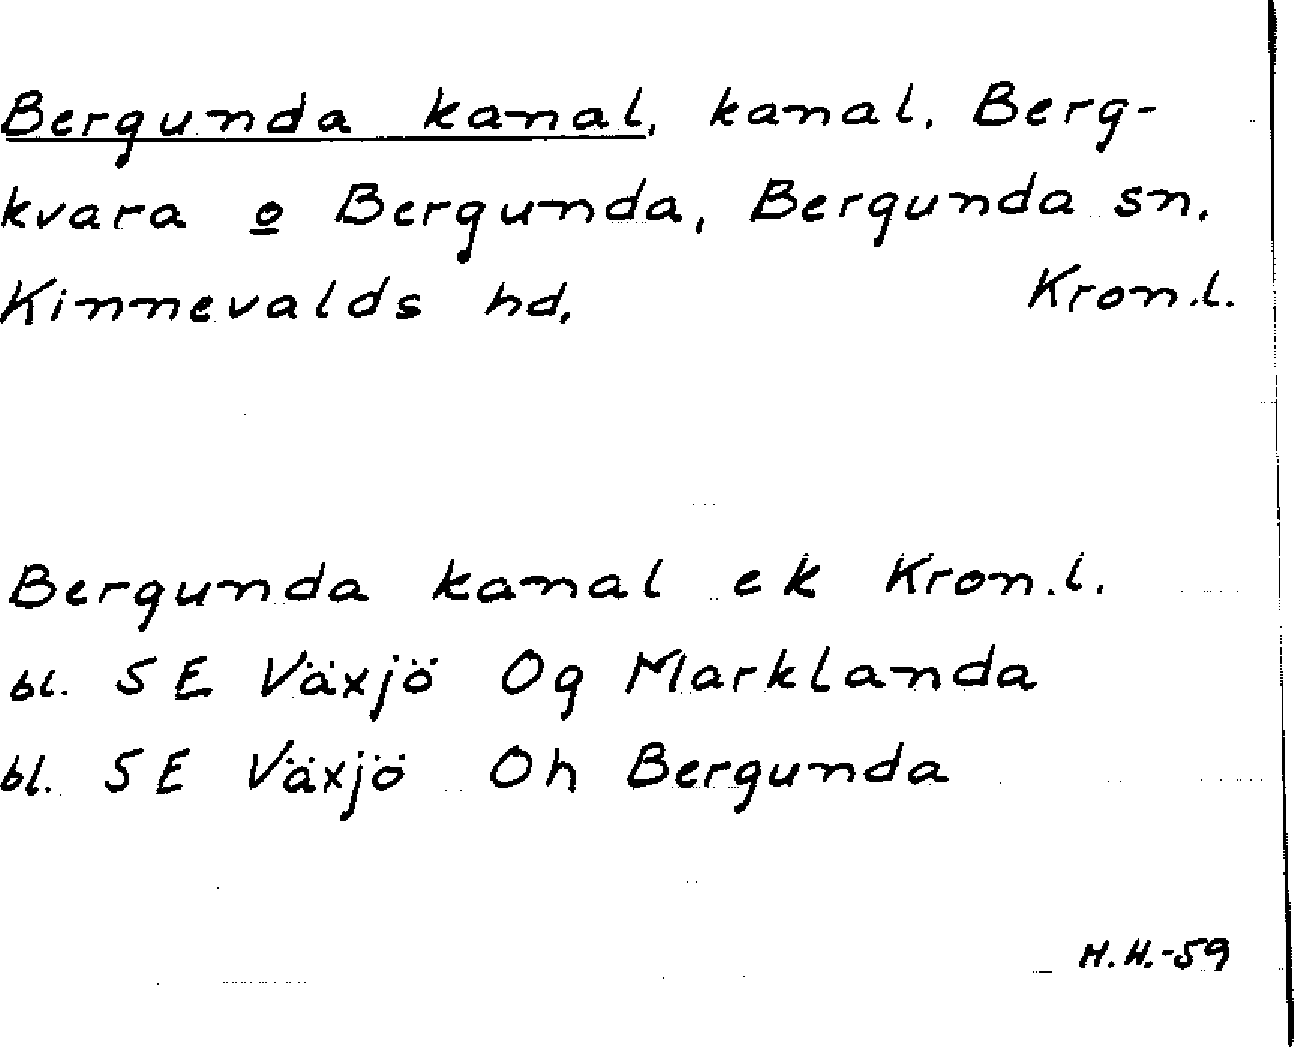 Bergunda kanal, kanal. Berg-
kvara o Bergunda, Bergunda sn.
Kinnevalds hd, Kron.l.
Bergunda kanal ek Kron.l.
bl. SE Växjö Og Marklanda
bl. SE Växjö Oh Bergunda
H.H.-59